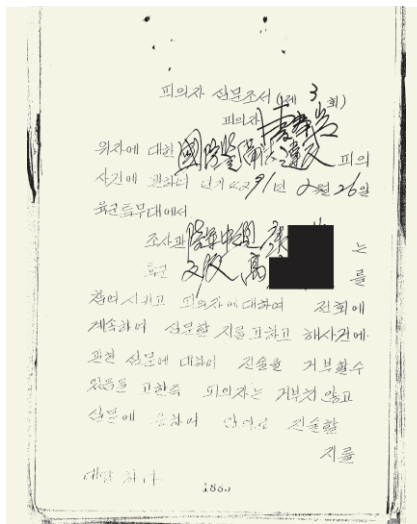 피의자 신문조서 (제 3 회)
피의자
위자에 대한 國防警備法違反 피의
사건에 관하여 단기 4291년 2월 26일
육군특무대에서
조사관 陸軍中領 는
육군 文官 高 를
참여시키고 피의자에 대하여 전회에
계속하여 신문할 지를 고하고 해사건에
관한 신문에 대하여 진술을 거부할수
있음을 고한즉 피의자는 거부치 않고
신문에 응하여 임의로 진술할
지를
대답하다